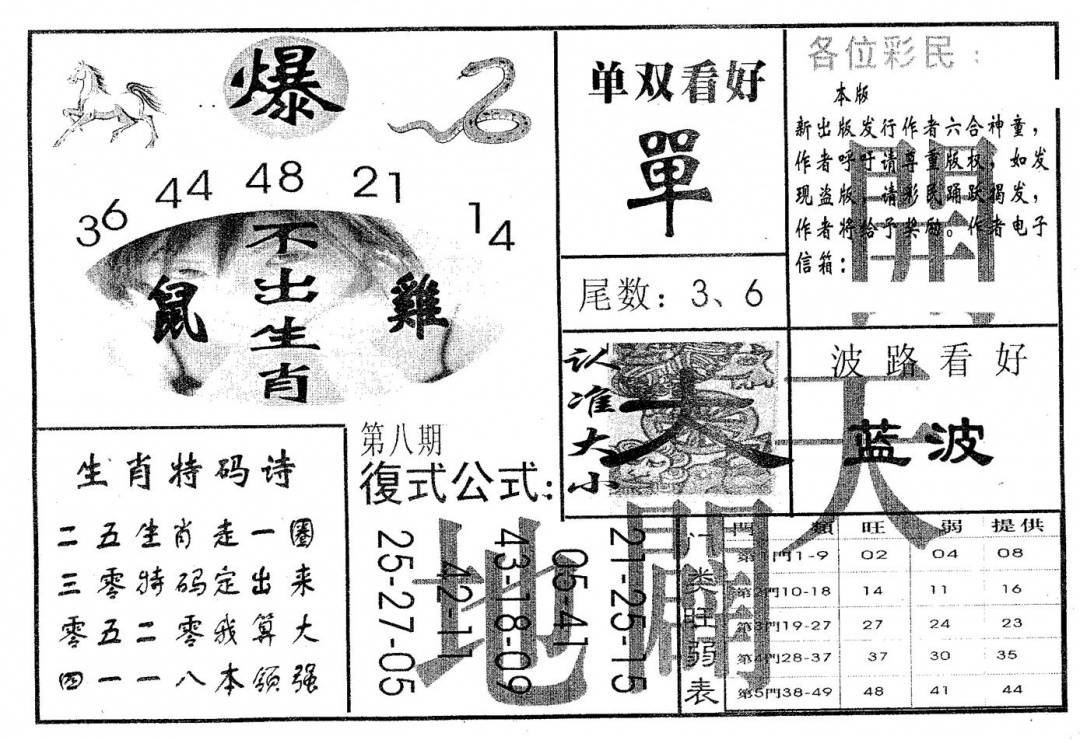 爆
36 44 48 21 14
不出生肖
鼠
雞
单双看好
單
尾数：3、6
各位彩民：
本版
新出版发行作者六合神童，
作者呼吁请尊重版权，如发
现盗版，请彩民踊跃揭发，
作者将给予奖励。作者电子
信箱：
開
认准大小
大
波路看好
蓝波
天
生肖特码诗
二五生肖走一圈
三零特码定出来
零五二零我算大
四一一八本领强
第八期
復式公式：
25-27-05
42-11
43-18-09
05-41
21-25-15
地
闢
门类旺弱表
門 類 旺 弱 提供
第1門1-9 02 04 08
第2門10-18 14 11 16
第3門19-27 27 24 23
第4門28-37 37 30 35
第5門38-49 48 41 44